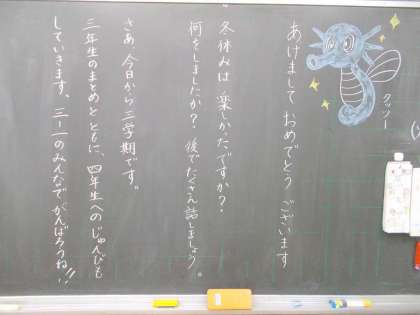 タッツー
あけまして おめでとう ございます
冬休みは 楽しかったですか？
何をしましたか？ 後でたくさん話しましょう。
さあ、今日から三学期です。
三年生のまとめと ともに、四年生へのじゅんびも
していきます。三-一のみんなでがんばろうね!!